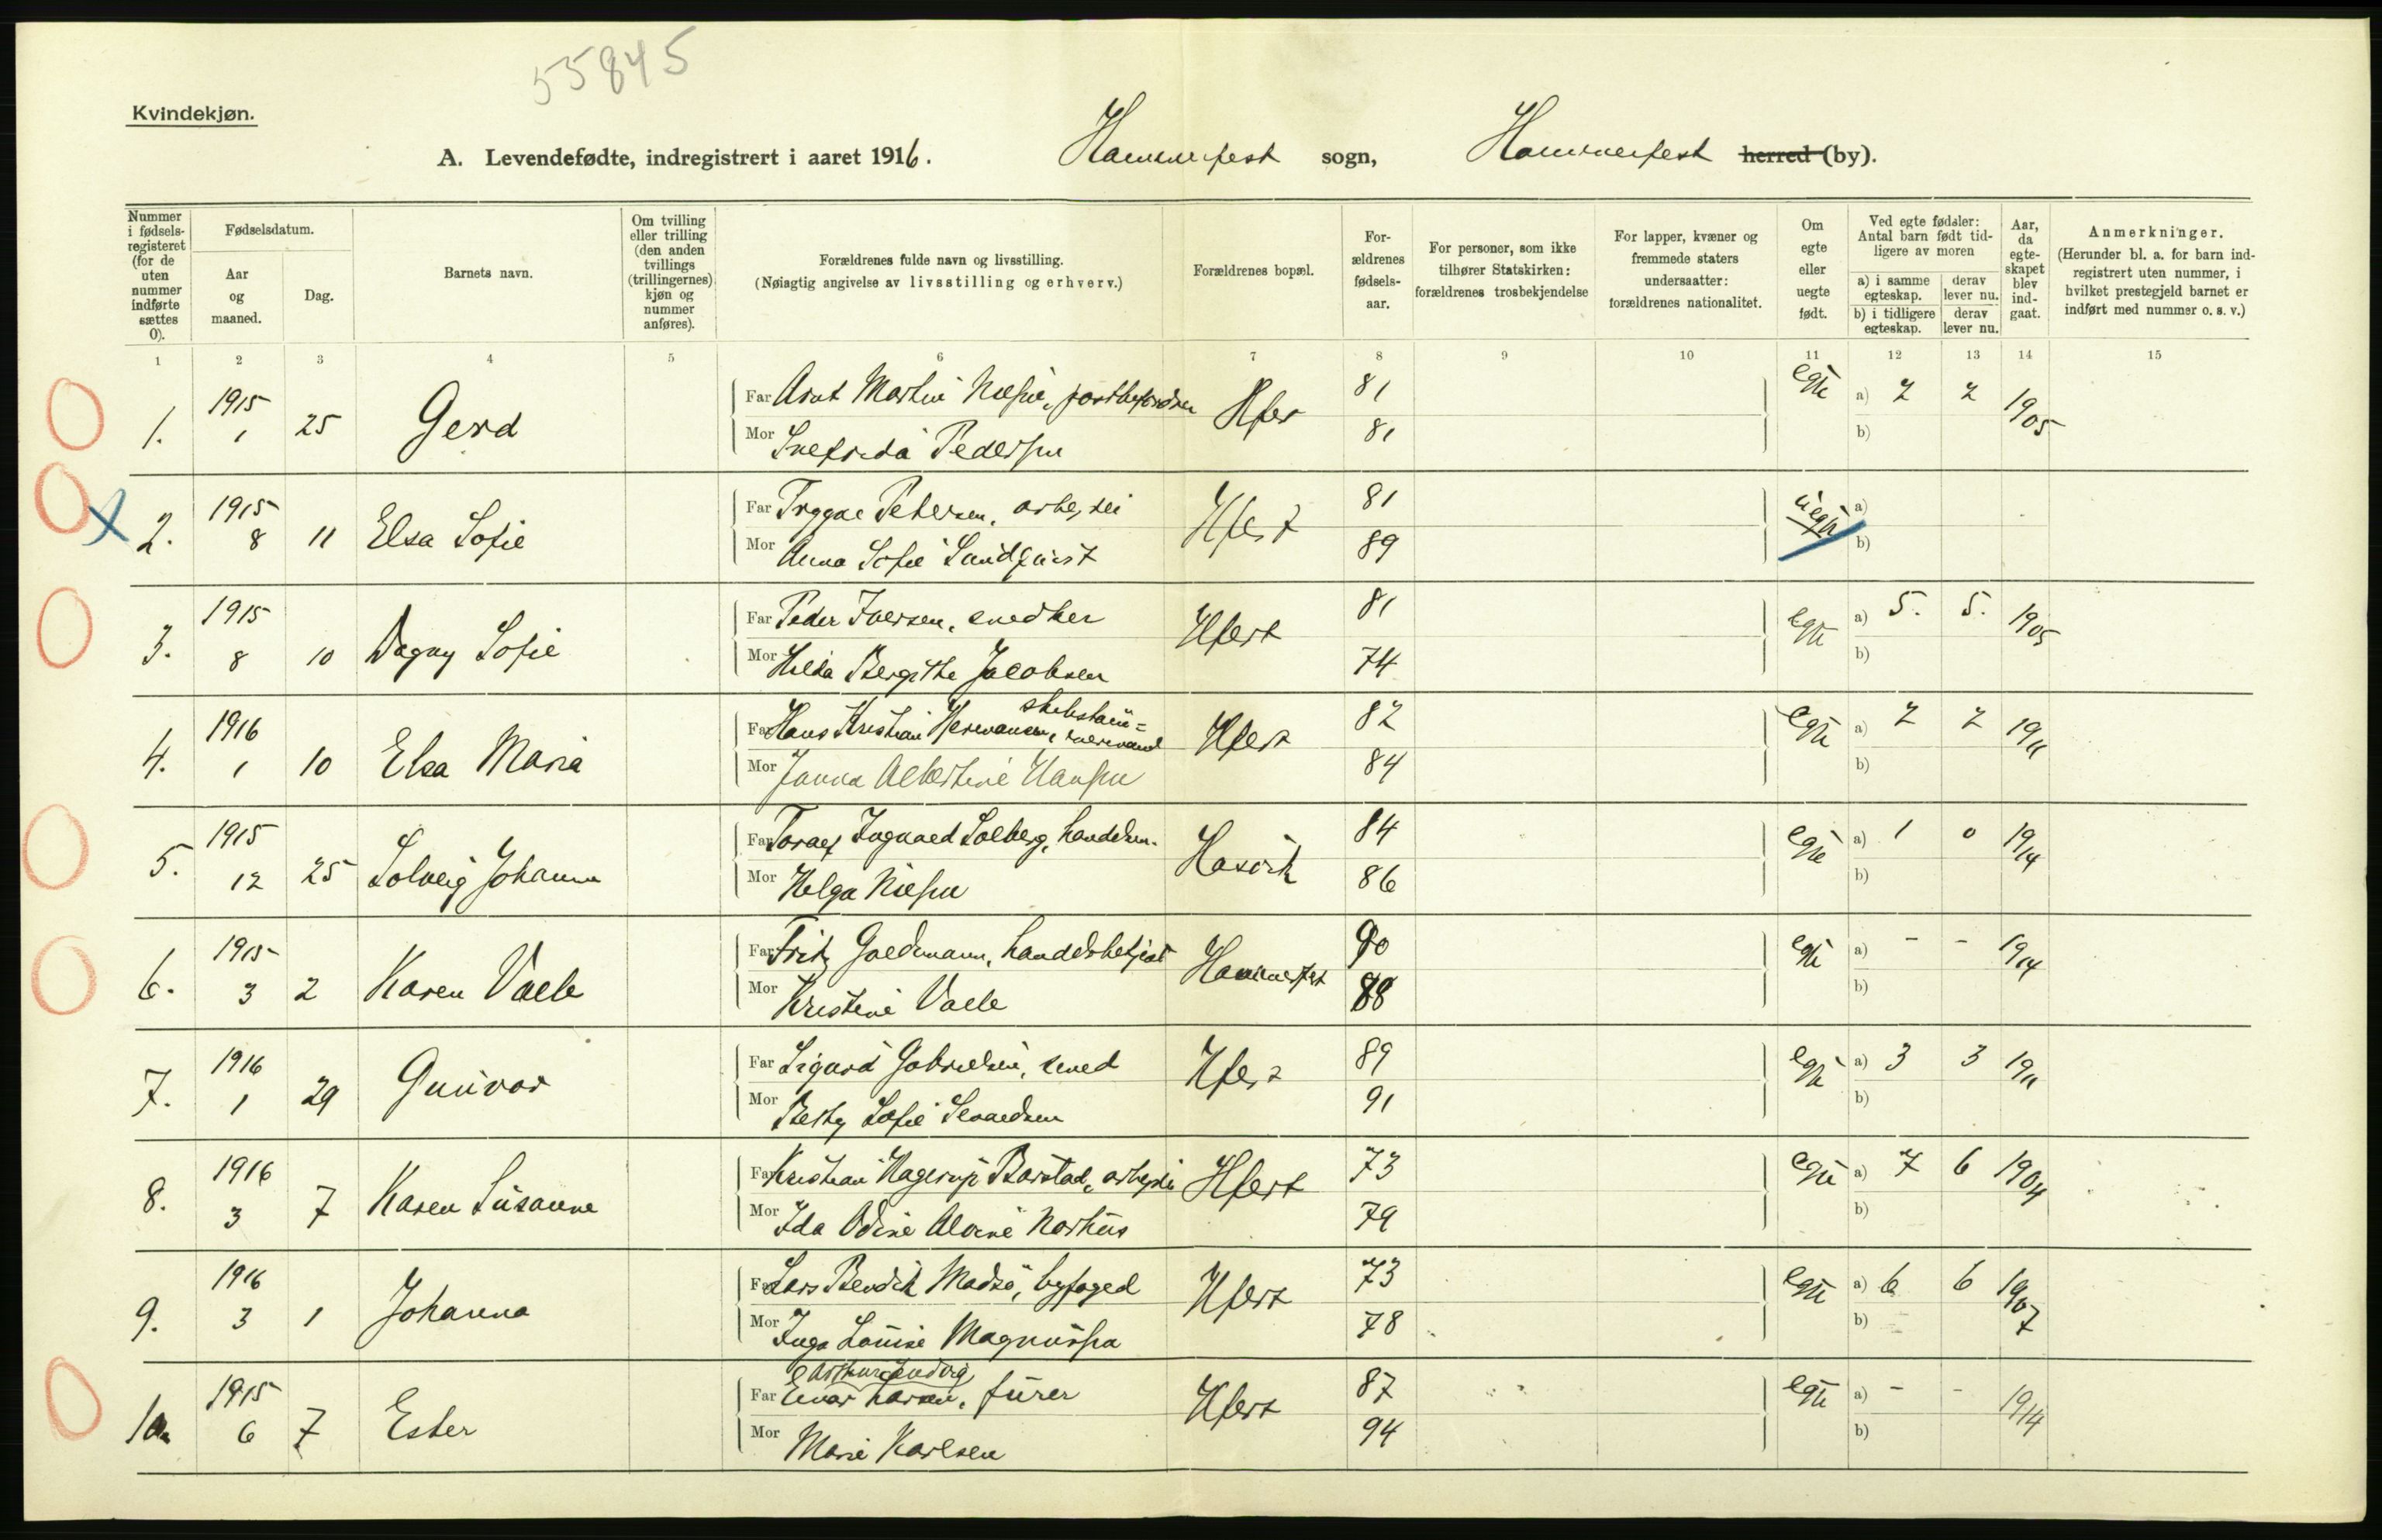 55845
Kvindekjøn.
A. Levendefødte, indregistrert i aaret 1916. Hammerfest sogn, Hammerfest herred (by).
Nummer i fødselsregisteret (for de uten nummer indførte sættes 0).
Fødselsdatum.
Aar og maaned.
Dag.
Barnets navn.
Om tvilling eller trilling (den anden tvillings (trillingernes) kjøn og nummer anføres).
Forældrenes fulde navn og livsstilling.
(Nøiagtig angivelse av livsstilling og erhverv.)
Forældrenes bopæl.
Forældrenes fødselsaar.
For personer, som ikke tilhører Statskirken: forældrenes trosbekjendelse
For lapper, kvæner og fremmede staters undersaatter: forældrenes nationalitet.
Om egte eller uegte født.
Ved egte fødsler: Antal barn født tidligere av moren
a) i samme egteskap. derav lever nu.
b) i tidligere egteskap. derav lever nu.
Aar, da egteskapet blev indgaat.
Anmerkninger.
(Herunder bl. a. for barn indregistrert uten nummer, i hvilket prestegjeld barnet er indført med nummer o. s. v.)
1 2 3 4 5 6 7 8 9 10 11 12 13 14 15
1. 1915 1 25 Gerd
Far Arnt Martin Nilsen, Hfest 81 egte a) 2 2 1905
Mor Pedersen 81 b)
2. 1915 8 11 Elsa Sofie
Far Trygve Petersen, Hfest 81 uegte a)
Mor Anna Sofie Sundqvist 89 b)
3. 1915 8 10 Dagny Sofie
Far Peder Iversen, snedker Hfest 81 egte a) 5. 5. 1905
Mor Hilda Bergithe Jacobsen 74 b)
4. 1916 1 10 Elsa Maria
Far Hans Kristian Hermansen, Hfest 82 egte a) 2 2 1911
Mor Janna Albertine Hansen 84 b)
5. 1915 12 25 Solveig Johanna
Far Ingvald Solberg, handelsm. Hasvik 84 egte a) 1 0 1914
Mor Helga Nilsen 86 b)
6. 1915 3 2 Karen Valle
Far Fritz Goldmann, handelsbetjent Hammerfest 90 egte a) - - 1914
Mor Kristine Valle 88 b)
7. 1916 1 29 Gunvor
Far Sigurd Gabrielsen, smed Hfest 89 egte a) 3 3 1911
Mor Betsy Sofie 91 b)
8. 1916 3 7 Karen Susanne
Far Kristian Hagerup Barstad, arbeider Hfest 73 egte a) 7 6 1904
Mor Ida Odine Alvine Norhus 79 b)
9. 1916 3 1 Johanna
Far Lars Bendik Madsø, byfoged Hfest 73 egte a) 6 6 1907
Mor Inga Louise Magnussen 78 b)
10. 1915 6 7 Ester
Arthur Ludvig
Far Einar Larsen, fürer Hfest 87 egte a) - - 1914
Mor Marie Karlsen 94 b)